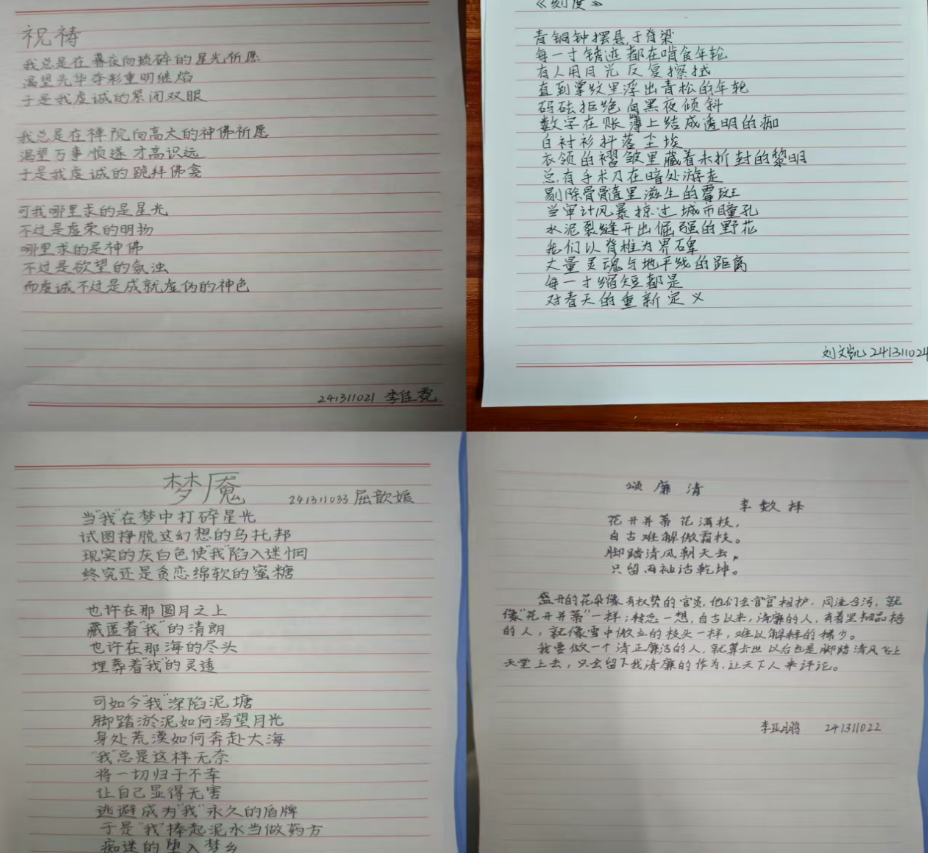 祝祷
我总是在暮夜向琐碎的星光祈愿
渴望光华夺彩重明继焰
于是我虔诚的紧闭双眼
我总是在禅院向高大的神佛祈愿
渴望万事顺遂才高识远
于是我虔诚的跪拜佛龛
可我哪里求的是星光
不过是虚荣的明扬
哪里求的是神佛
不过是欲望的氛浊
而虔诚不过是成就虚伪的神色
241311021 李佳霓
《刻度》
青铜钟摆悬于脊梁
每一寸锈迹都在啃食年轮
有人用月光反复擦拭
直到掌纹里浮出青松的年轮
砝码拒绝向黑夜倾斜
数字在账簿上结成透明的痂
白衬衫抖落尘埃
衣领的褶皱里藏着未拆封的黎明
总有手术刀在暗处游走
剔除骨髓里滋生的霉斑
当审计风暴掠过城市瞳孔
水泥裂缝开出倔强的野花
我们以脊椎为界碑
丈量灵魂与地平线的距离
每一寸缩短都是
对春天的重新定义
刘文凯 241311024
梦魇
241311033 屈歆媛
当“我”在梦中打碎星光
试图挣脱这幻想的乌托邦
现实的灰白色使“我”陷入迷惘
终究还是贪恋绵软的蜜糖
也许在那圆月之上
藏匿着“我”的清朗
也许在那海的尽头
埋葬着“我”的灵魂
可如今“我”深陷泥塘
脚踏淤泥如何渴望月光
身处荒漠如何奔赴大海
“我”总是这样无奈
将一切归于不幸
让自己显得无害
逃避成为“我”永久的盾牌
于是“我”捧起泥水当做药方
痴迷的堕入梦乡
颂廉清
花开并蒂花满枝，
自古难解傲霜枝。
脚踏清风朝天去，
只留两袖话乾坤。
盛开的花朵像有权势的官员，他们会官官相护，同流合污，就
像“花开并蒂”一样；转念一想，自古以来，清廉的人，有着
的人，就像雪中傲立的枝头一样，难以解释的稀少。
我要做一个清正廉洁的人，就算去世以后也是脚踏清风飞上
天堂上去，只会留下我清廉的作为，让天下人来评论。
241311022